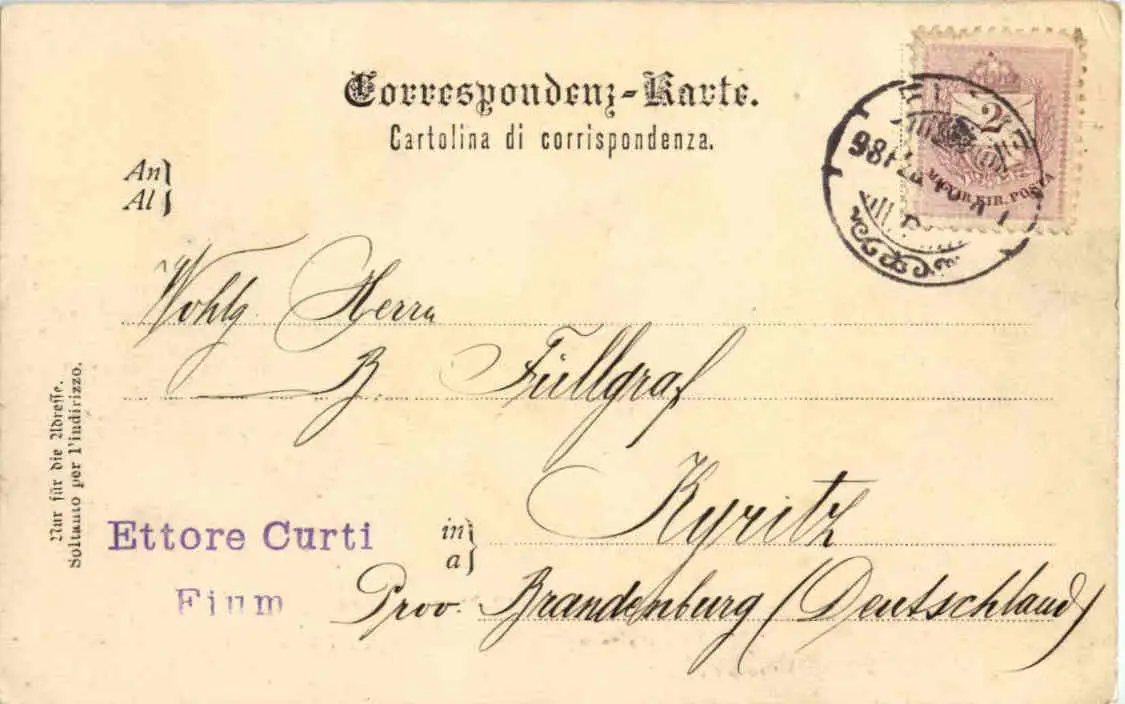 Correspondenz-Karte.
Cartolina di corrispondenza.
An
Al
2
MAGYAR KIR. POSTA
Wohlg. Herrn
B. Füllgraf
Nur für die Adresse.
Soltanto per l'indirizzo.
Ettore Curti
Fium
in
a
Kyritz
Prov. Brandenburg (Deutschland)